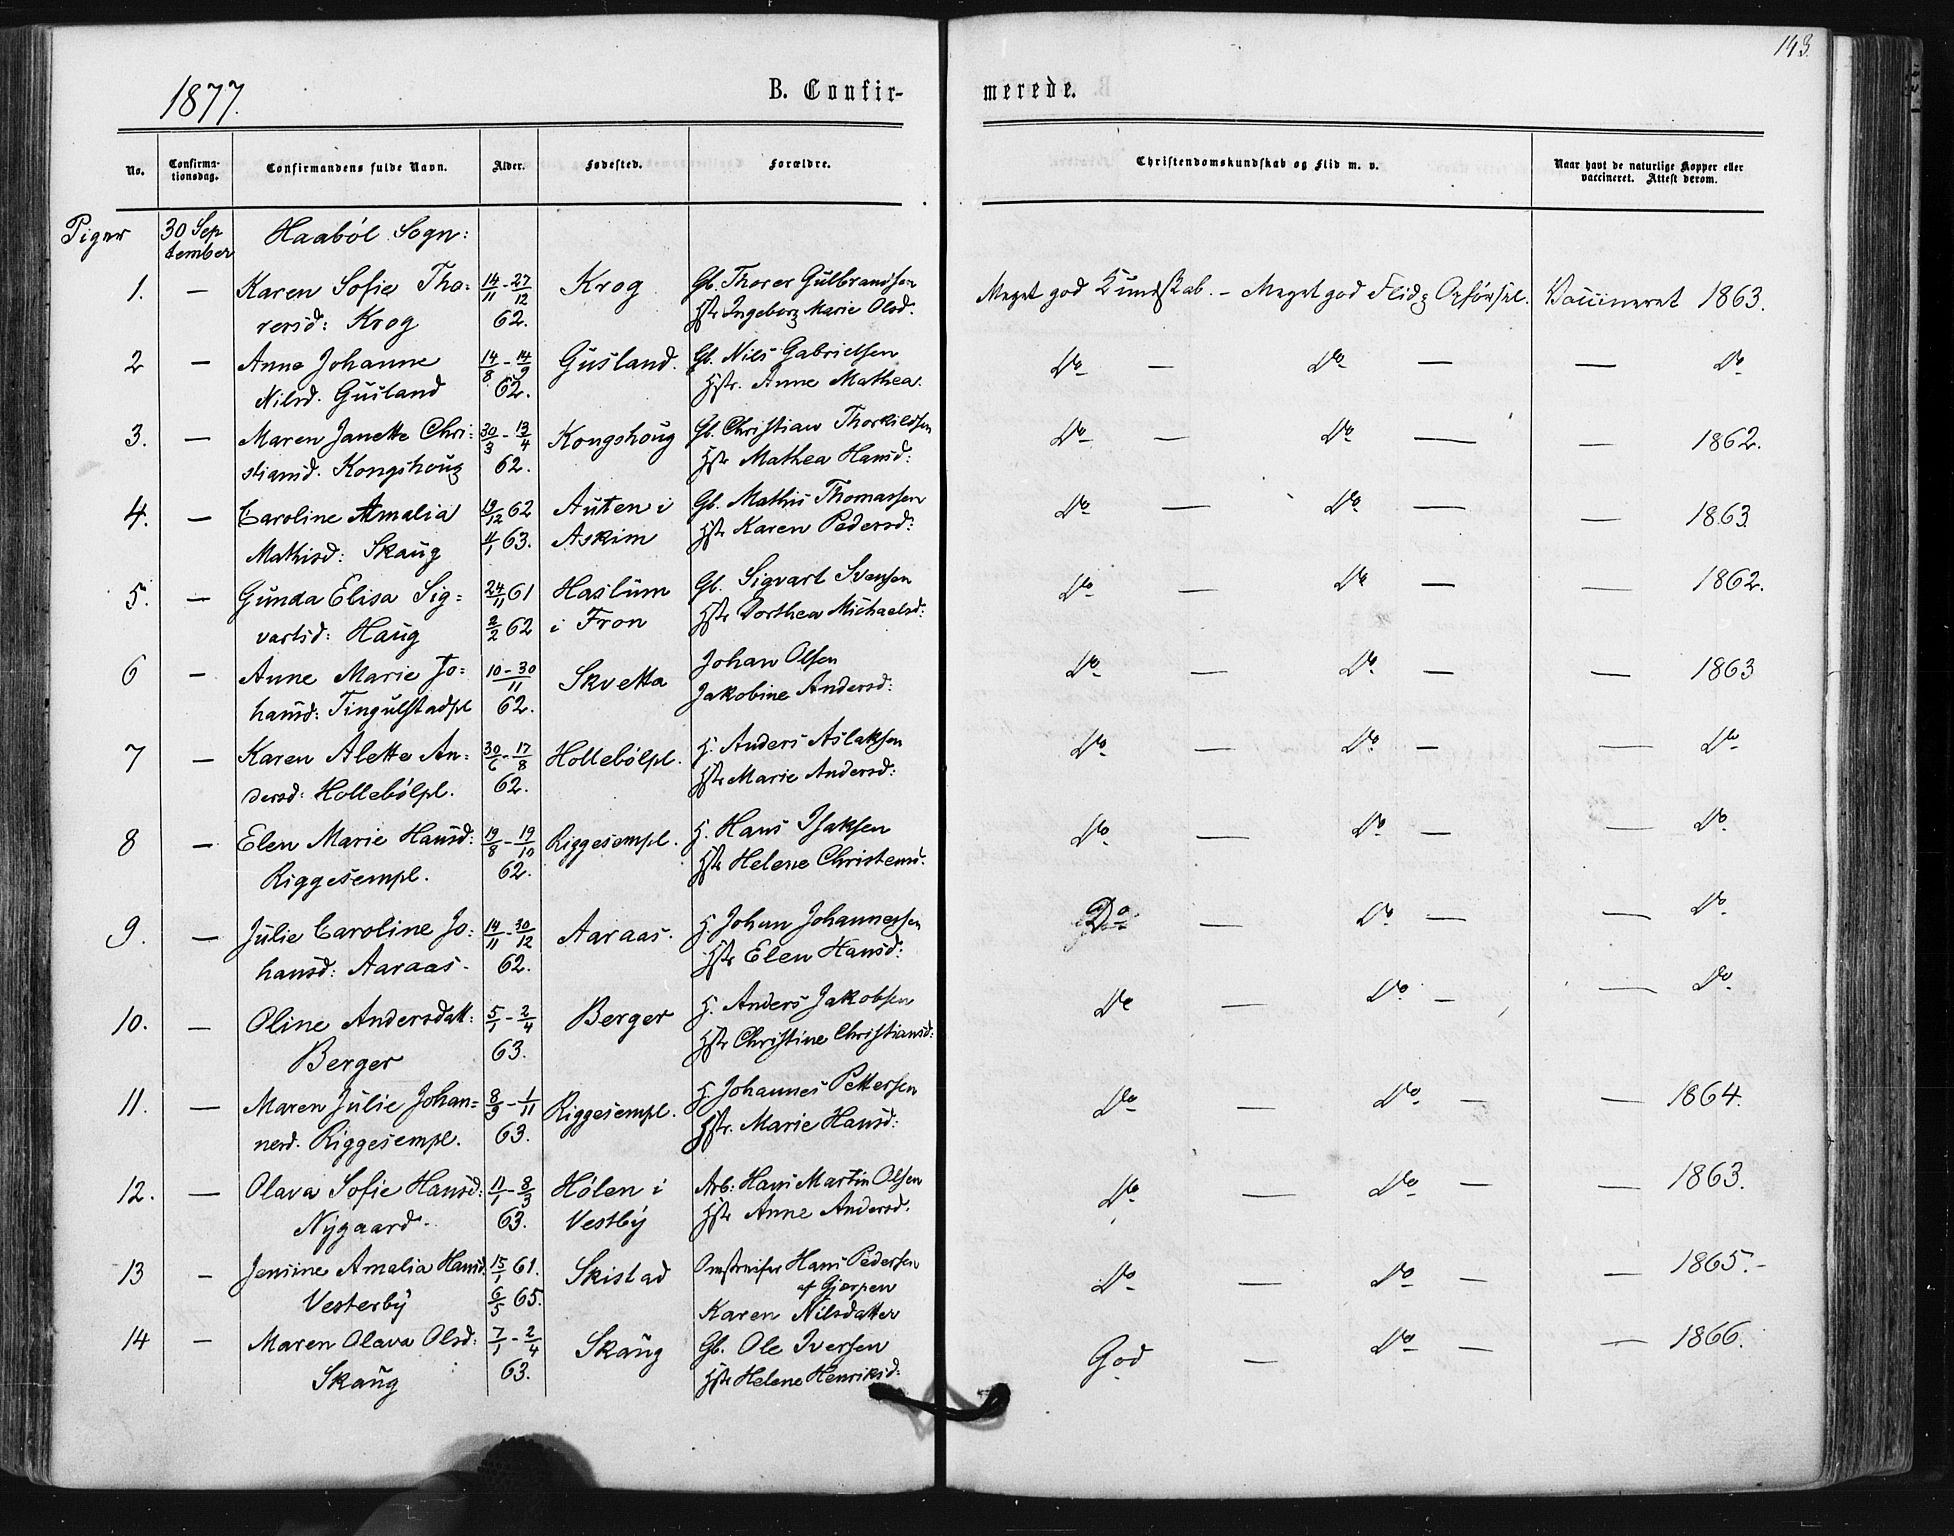 143.
1877. B. Confir- merede.
No. Confirma-tionsdag. Confirmandens fulde Navn. Alder. Fødested. Forældre. Christendomskundskab og Flid m. v. Naar havt de naturlige Kopper eller vaccineret. Attest derom.
Piger 30 Sep Haabøl Sogn:
tember
1. — Karen Sofie Tho= 14/11 - 27/12 Krog Gb. Thorer Gulbrandsen Meget god Kundskab. — Meget god Flid & Opførsel. Vaccineret 1863.
rersd: Krog 62. Hstr Ingeborg Marie Olsd.
2 — Anne Johanne 14/8 - 14/9 Gusland. Gb. Nils Gabrielsen Do — Do — — Do
Nilsd. Gusland 62. Hstr. Anne Mathea.
3. — Maren Janette Chri= 30/3 - 13/4 Kongshoug Gb. Christian Thorkildsen Do — Do — — 1862.
stiansd. Kongshoug 62. Hstr Mathea Hansd:
4. — Caroline Amalia 19/12 62 Auten i Gb. Mathis Thomassen Do — Do — — 1863.
Mathisd: Skaug 4/1 63. Askim Hstr Karen Pedersd:
5. — Gunda Elisa Sig= 24/11 61 Haslum Gb. Sigvart Svensen Do — Do — — 1862.
vartsd: Haug 2/2 62 i Fron Hstr Dorthea Michaelsd:
6 — Anne Marie Jo= 10-30/11 Skvetta Johan Olsen Do — Do — — 1863
hansd: Tingulstadpl 62. Jakobine Andersd:
7 — Karen Alette An= 30/6 - 17/8 Hollebølpl. H. Anders Aslaksen Do — Do — — Do
dersd: Hollebølpl. 62. Hstr Marie Andersd:
8 — Elen Marie Hansd: 19/8 - 19/10 Riggesempl. H. Hans Isaksen Do — Do — — Do
Riggesempl. 62. Hstr Helene Christensd.
9. — Julie Caroline Jo= 14/11 - 30/12 Aaraas. H. Johan Johannessen Do — Do — — Do
hansd: Aaraas. 62. Hstr Elen Hansd:
10. — Oline Andersdatt: 5/1 - 2/4 Berger H. Anders Jakobsen Do — Do — — Do
Berger 63. Hstr Christine Christiansd:
11. — Maren Julie Johan= 8/9 - 1/11 Riggesempl. H. Johannes Pettersen Do — Do — — 1864.
nesd. Riggesempl. 63. Hstr. Marie Hansd:
12. — Olava Sofie Hansd: 11/1 - 8/3 Hølen i Arb: Hans Martin Olsen Do — Do — — 1863.
Nygaard. 63. Vestby Hstr Anne Andersd.
13 — Jensine Amalia Hansd. 15/1 61. Skistad Omstreifer Hans Pedersen Do — Do — — 1865.-
af Gjerpen
Vesterby 6/5 65. Karen Nilsdatter
14 — Maren Olava Olsd: 7/1 - 2/4 Skaug Gb. Ole Iversen God — Do — — 1866.
Skaug 63. Hstr Helene Henriksd: